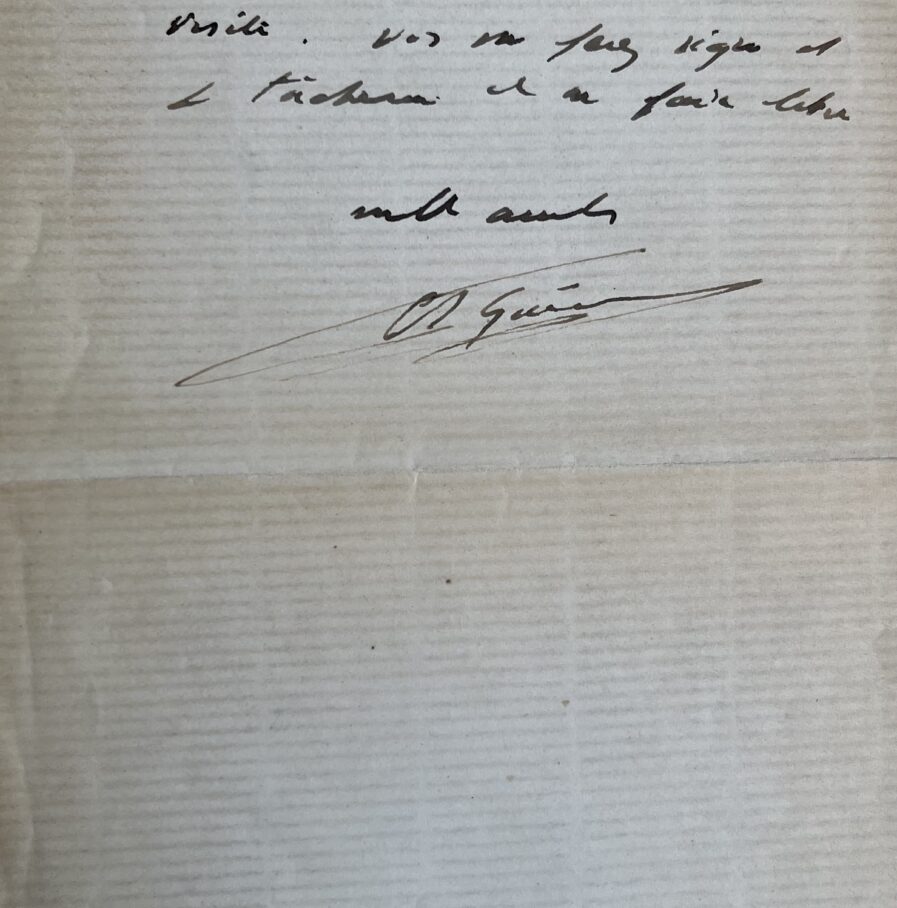 visite. Vous me ferez signe et
je tâcherai de me faire libre
mille amitiés
Ch Guérin